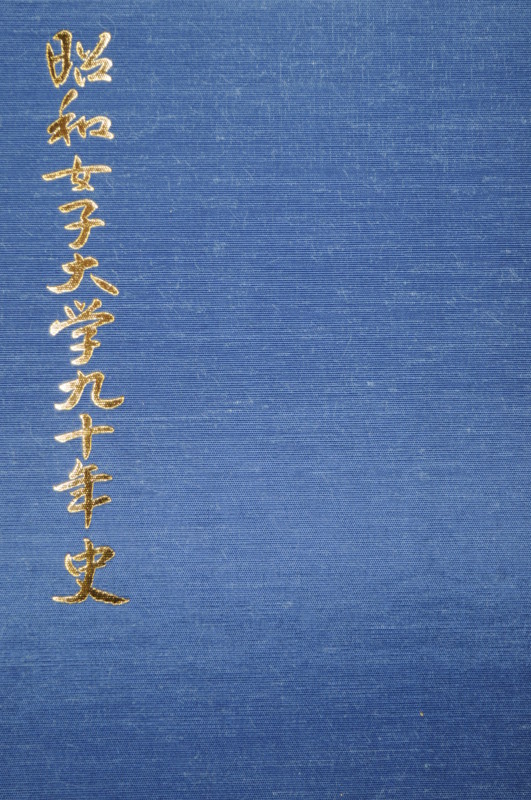 昭和女子大学九十年史